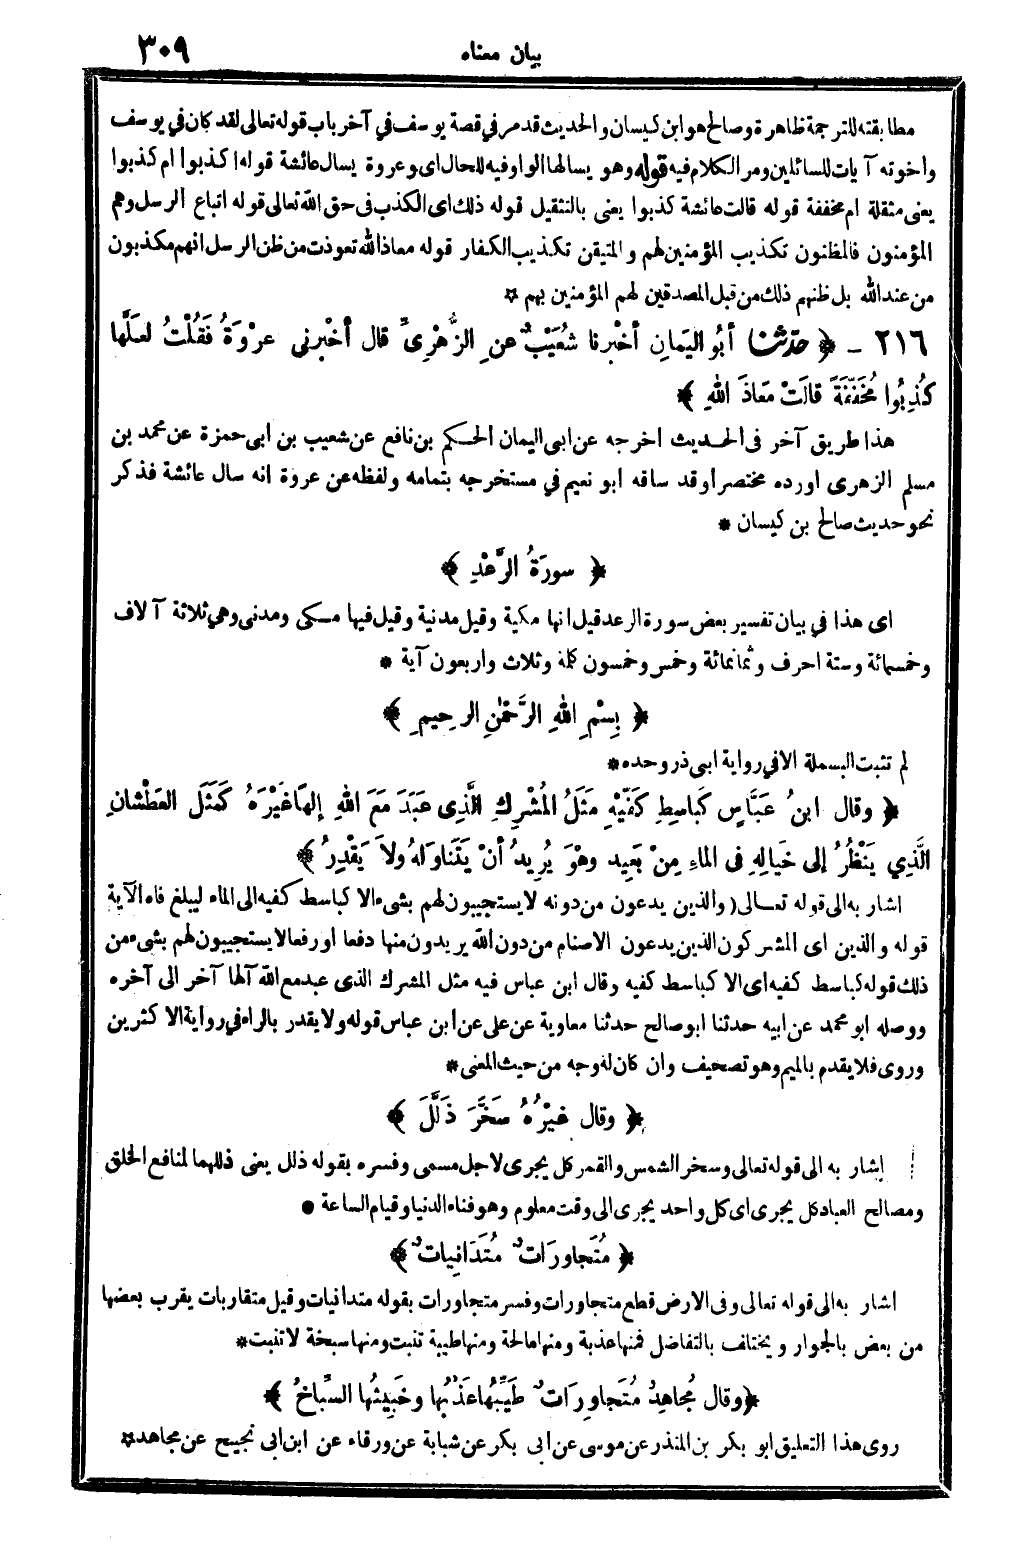 بيان معناه ٣٠٩
مطابقته للترجمة ظاهرة وصالح هو ابن كيسان والحديث قد مر في قصة يوسف في آخر باب قوله تعالى لقد كان في يوسف
وأخوته آيات للسائلين ومر الكلام فيه قوله وهو يسالها الواو فيه للحال اى وعروة يسال عائشة قوله اكذبوا ام كذبوا
يعنى مثقلة ام مخففة قوله قالت عائشة كذبوا يعنى بالتثقيل قوله ذلك اى الكذب فى حق الله تعالى قوله اتباع الرسل وهم
المؤمنون فالمظنون تكذيب المؤمنين لهم والمتيقن تكذيب الكفار قوله معاذ الله تعوذت من ظن الرسل انهم مكذبون
من عند الله بل ظنهم ذلك من قبل المصدقين لهم المؤمنين بهم ☆
٢١٦ – ﴿ حدّثنا أبُو اليَمانِ أخْبرنا شُعَيْبٌ عنِ الزُّهْرِىِّ قال أخْبرنى عرْوَةُ فَقُلْتُ لعَلَّها
كُذِبُوا مُخَفَّفَةً قالَتْ مَعَاذَ اللهِ ﴾
هذا طريق آخر فى الحديث اخرجه عن ابى اليمان الحكم بن نافع عن شعيب بن ابى حمزة عن محمد بن
مسلم الزهرى اورده مختصرا وقد ساقه ابو نعيم في مستخرجه بتمامه ولفظه عن عروة انه سال عائشة فذكر
نحو حديث صالح بن كيسان *
﴿ سورَةُ الرَّعْدِ ﴾
اى هذا في بيان تفسير بعض سورة الرعد قيل انها مكية وقيل مدنية وقيل فيها مكى ومدنى وهي ثلاثة آلاف
وخمسمائة وستة احرف وثمانمائة وخمس وخمسون كلمة وثلاث واربعون آية *
﴿ بِسْمِ اللهِ الرَّحْمٰنِ الرحِيمِ ﴾
لم تثبت البسملة الا في رواية ابى ذر وحده *
﴿ وقال ابنُ عَبَّاسٍ كَباسِطِ كَفَّيْهِ مَثَلُ المُشْرِكِ الَّذِى عَبَدَ مَعَ اللهِ إلهًا غَيْرَهُ كَمَثَلِ العَطْشانِ
الَّذِي يَنْظُرُ إلى خَيالِهِ فى الماءِ مِنْ بَعِيد وهْوَ يُرِيدُ أنْ يَتَناوَلهُ ولاَ يَقْدِرُ ﴾
اشار به الى قوله تعالى (والذين يدعون من دونه لا يستجيبون لهم بشىء الا كباسط كفيه الى الماء ليبلغ فاه الآية
قوله والذين اى المشركون الذين يدعون الاصنام من دون الله يريدون منها دفعا او رفعا لا يستجيبون لهم بشىء من
ذلك قوله كباسط كفيه اى الا كباسط كفيه وقال ابن عباس فيه مثل المشرك الذى عبد مع الله آلها آخر الى آخره
ووصله ابو محمد عن ابيه حدثنا ابو صالح حدثنا معاوية عن على عن ابن عباس قوله ولا يقدر بالراء في رواية الاكثرين
وروى فلا يقدم بالميم وهو تصحيف وان كان له وجه من حيث المعنى *
﴿ وقال غيْرُهُ سَخَّرَ ذَلَّلَ ﴾
إشار به الى قوله تعالى وسخر الشمس والقمر كل يجرى لاجل مسمى وفسره بقوله ذلل يعنى ذللهما لمنافع الخلق
ومصالح العباد كل يجرى اى كل واحد يجرى الى وقت معلوم وهو فناء الدنيا وقيام الساعة *
﴿ مُتَجاورَاتٌ مُتَدَانِياتٌ ﴾
اشار به الى قوله تعالى وفى الارض قطع متجاورات وفسر متجاورات بقوله متدانيات وقيل متقاربات يقرب بعضها
من بعض بالجوار ويختلف بالتفاضل فمنها عذبة ومنها مالحة ومنها طيبة تنبت ومنها سبخة لا تنبت *
﴿ وقال مُجاهِدٌ مُتَجاوِرَاتٌ طَيِّبُها عَذْبُها وخَبِيثُها السِّباخُ ﴾
روى هذا التعليق ابو بكر بن المنذر عن موسى عن ابى بكر عن شبابة عن ورقاء عن ابن ابى نجيح عن مجاهد ☆